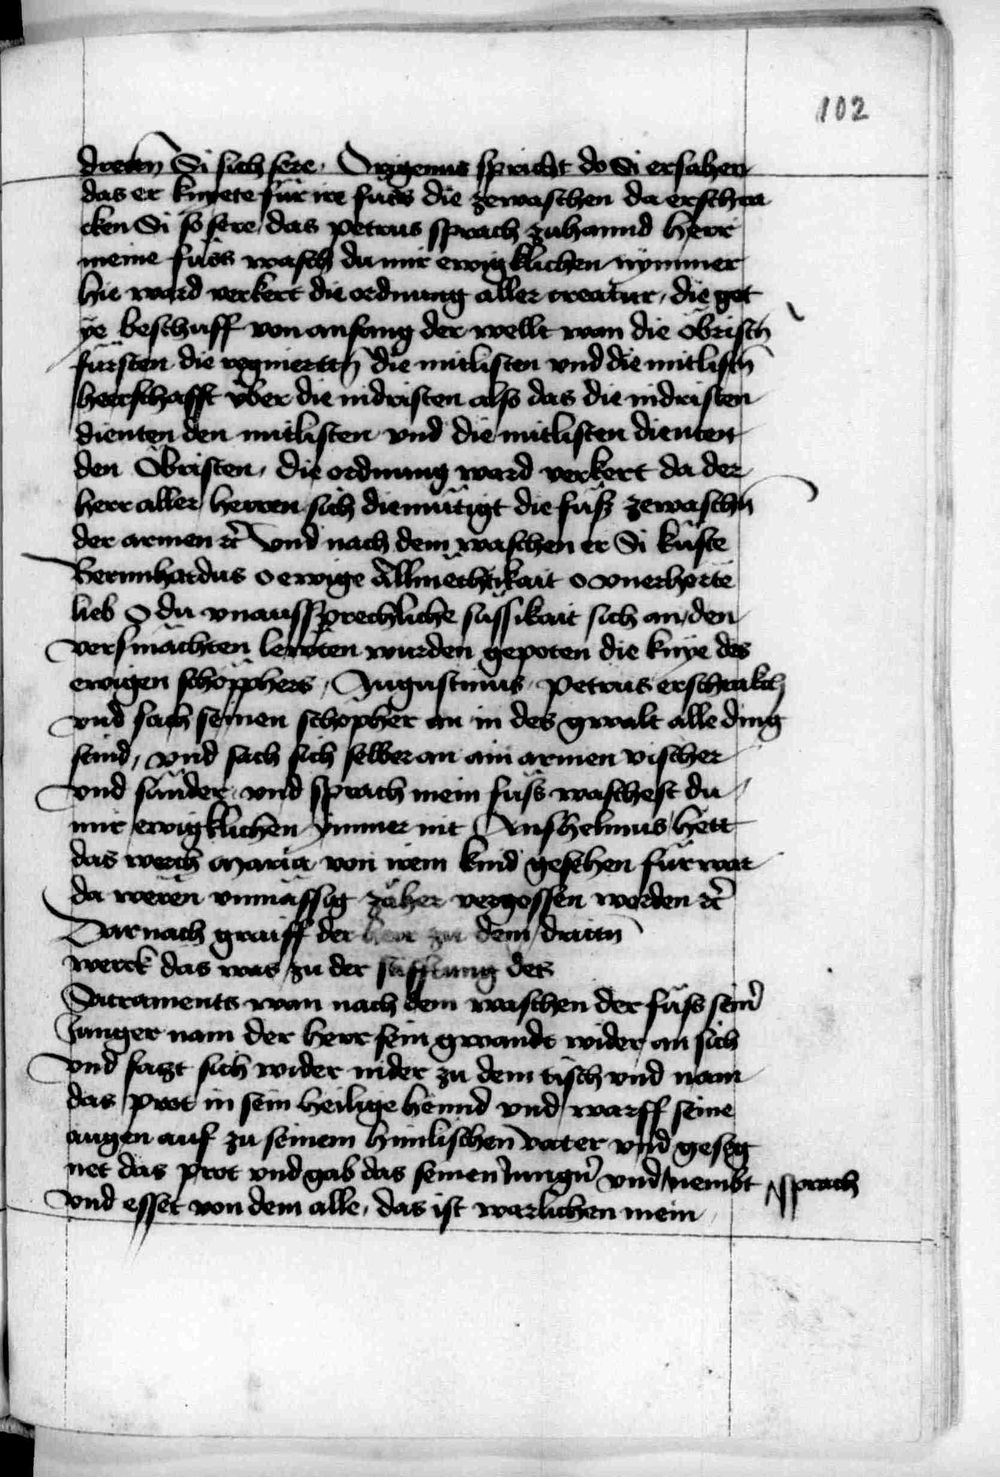 102
dretten Si sich sere. Origenus spricht do Si ersahen
das er knyete für ire fuess die zewaschen da erschra
cken Si so sere das petrus sprach zuhannd herr
meine füss wasch du mir ewigklichen nymmer
hie ward verkert die ordnung aller creatur, die got
ye beschuff von anfang der wellt wan die öbristn̄
fürsten die regniertn̄ die mitlisten vnd die mitlistn̄
herrschafft über die nidristen also das die nidristen
dienten den mitlisten vnd die mitlisten dienten
den Öbristen, die ordnung ward verkert da der
herr aller herren sich diemütigt die füss zewaschn̄
der armen rc̄ vnd nach dem waschen er Si küste
Bernnhardus o ewige Allmechtikait o vnerhorte
lieb O du vnaussprechliche süssikait sich an, den
versmächten lewten wurden gepoten die knye des
ewigen schöpphers, Augustinus, Petrus erschrakch
vnd sach seinen schöpher an in des gwalt alle ding
sind, vnd sach sich selber an ain armen vischer
vnd sünder, vnd sprach mein füss waschest du
mir ewigklichen ymmer nit Anshelmus hett
das werch maria von irem kind gesehen fürwar
da weren vnmässig zäher vergossen worden rc̄
Darnach graiff der herr zu dem drittn̄
werck das was zu der stifftung des
Sacraments wan nach dem waschen der füss sein̄
Junger nam der herr sein gwandt wider an sich
vnd satzt sich wider nider zu dem tisch vnd nam
das prot in sein heilige hennd vnd warff seine
augen auf zu seinem himlischen vater vnd geseg
net das prot vnd gab das seinen Jungn̄ vnd sprach nembt
vnd esset von dem alle, das ist warlichen mein